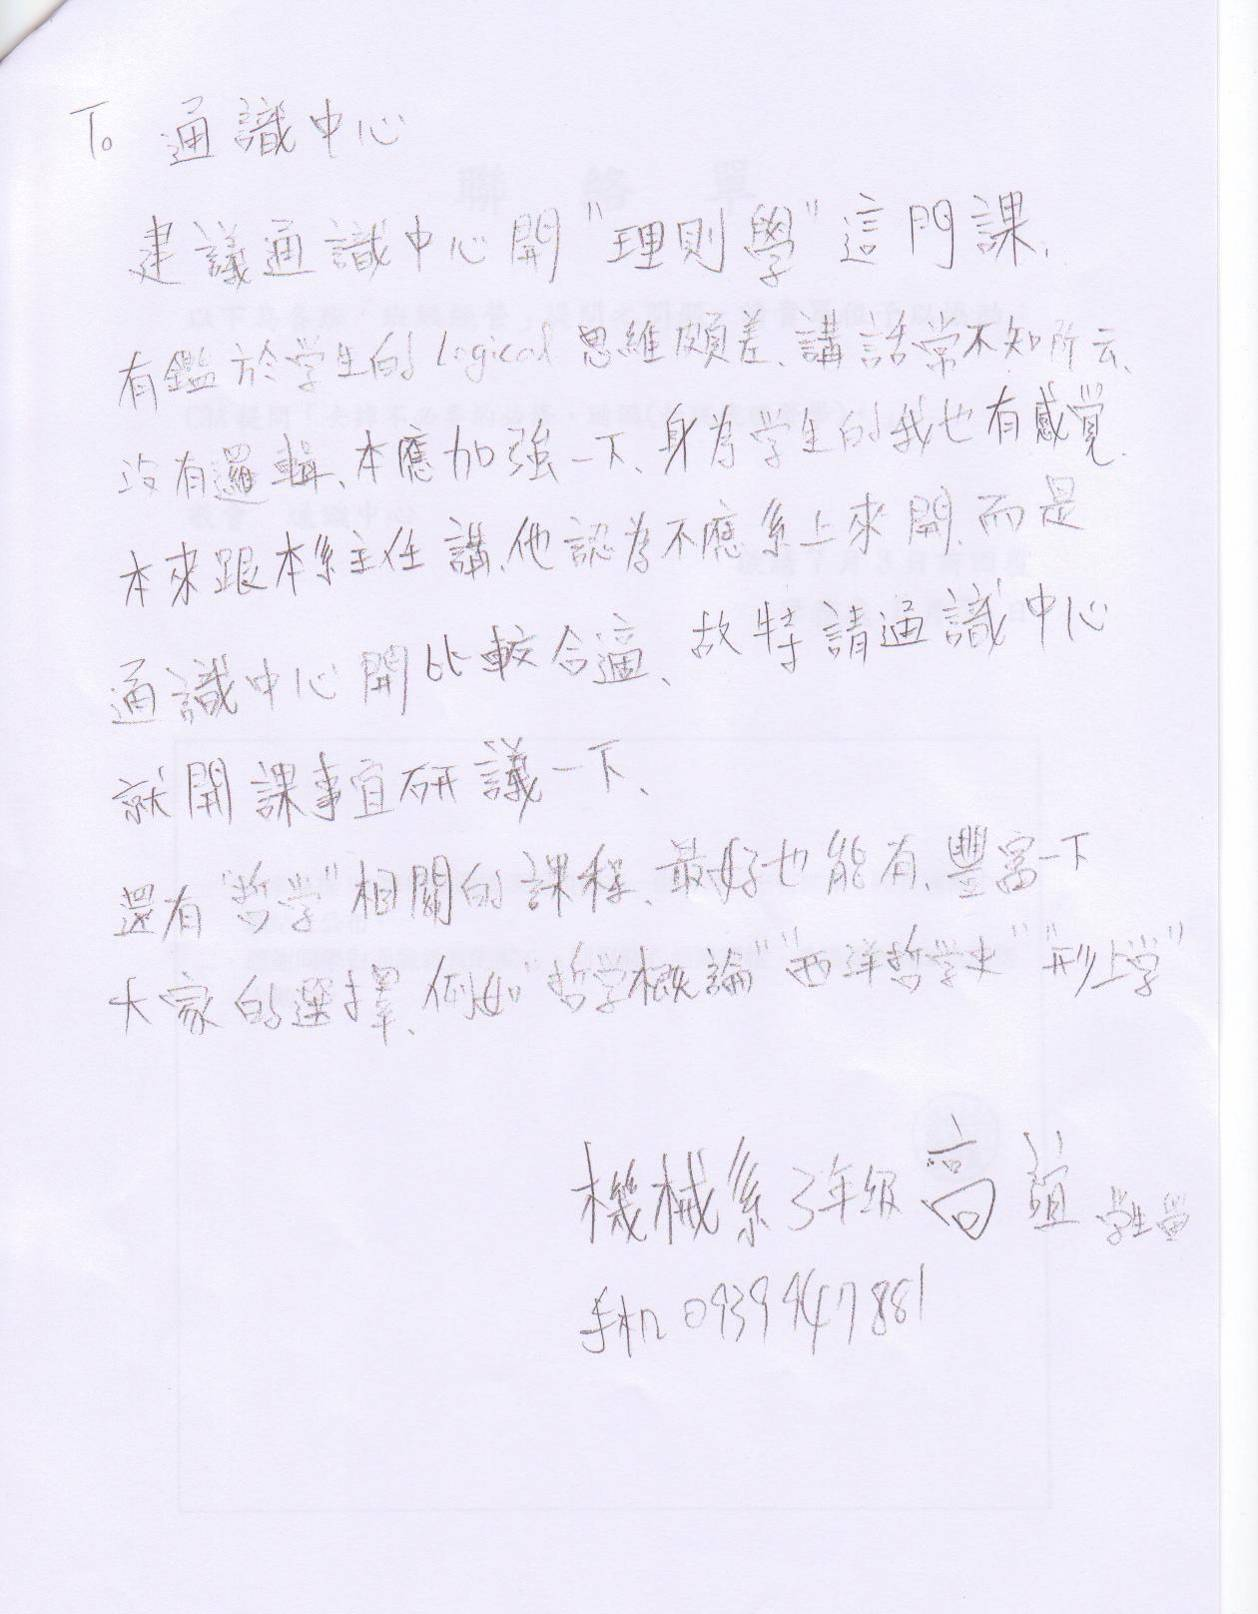 To 通識中心
建議通識中心開"理則學"這門課、
有鑑於学生的 Logical 思維頗差、講話常不知所云、
沒有邏輯、本應加強一下、身為学生的我也有感覚、
本來跟本系主任講、他認為不應系上來開、而是
通識中心開比較合適、故特請通識中心
就開課事宜研議一下、
還有"哲学"相關的課程、最好也能有、豐富一下
大家的選擇、例如"哲学概論""西洋哲学史""形上学"
機械系3年級 高誼 学生留
手机 0939947881
聯 絡 單